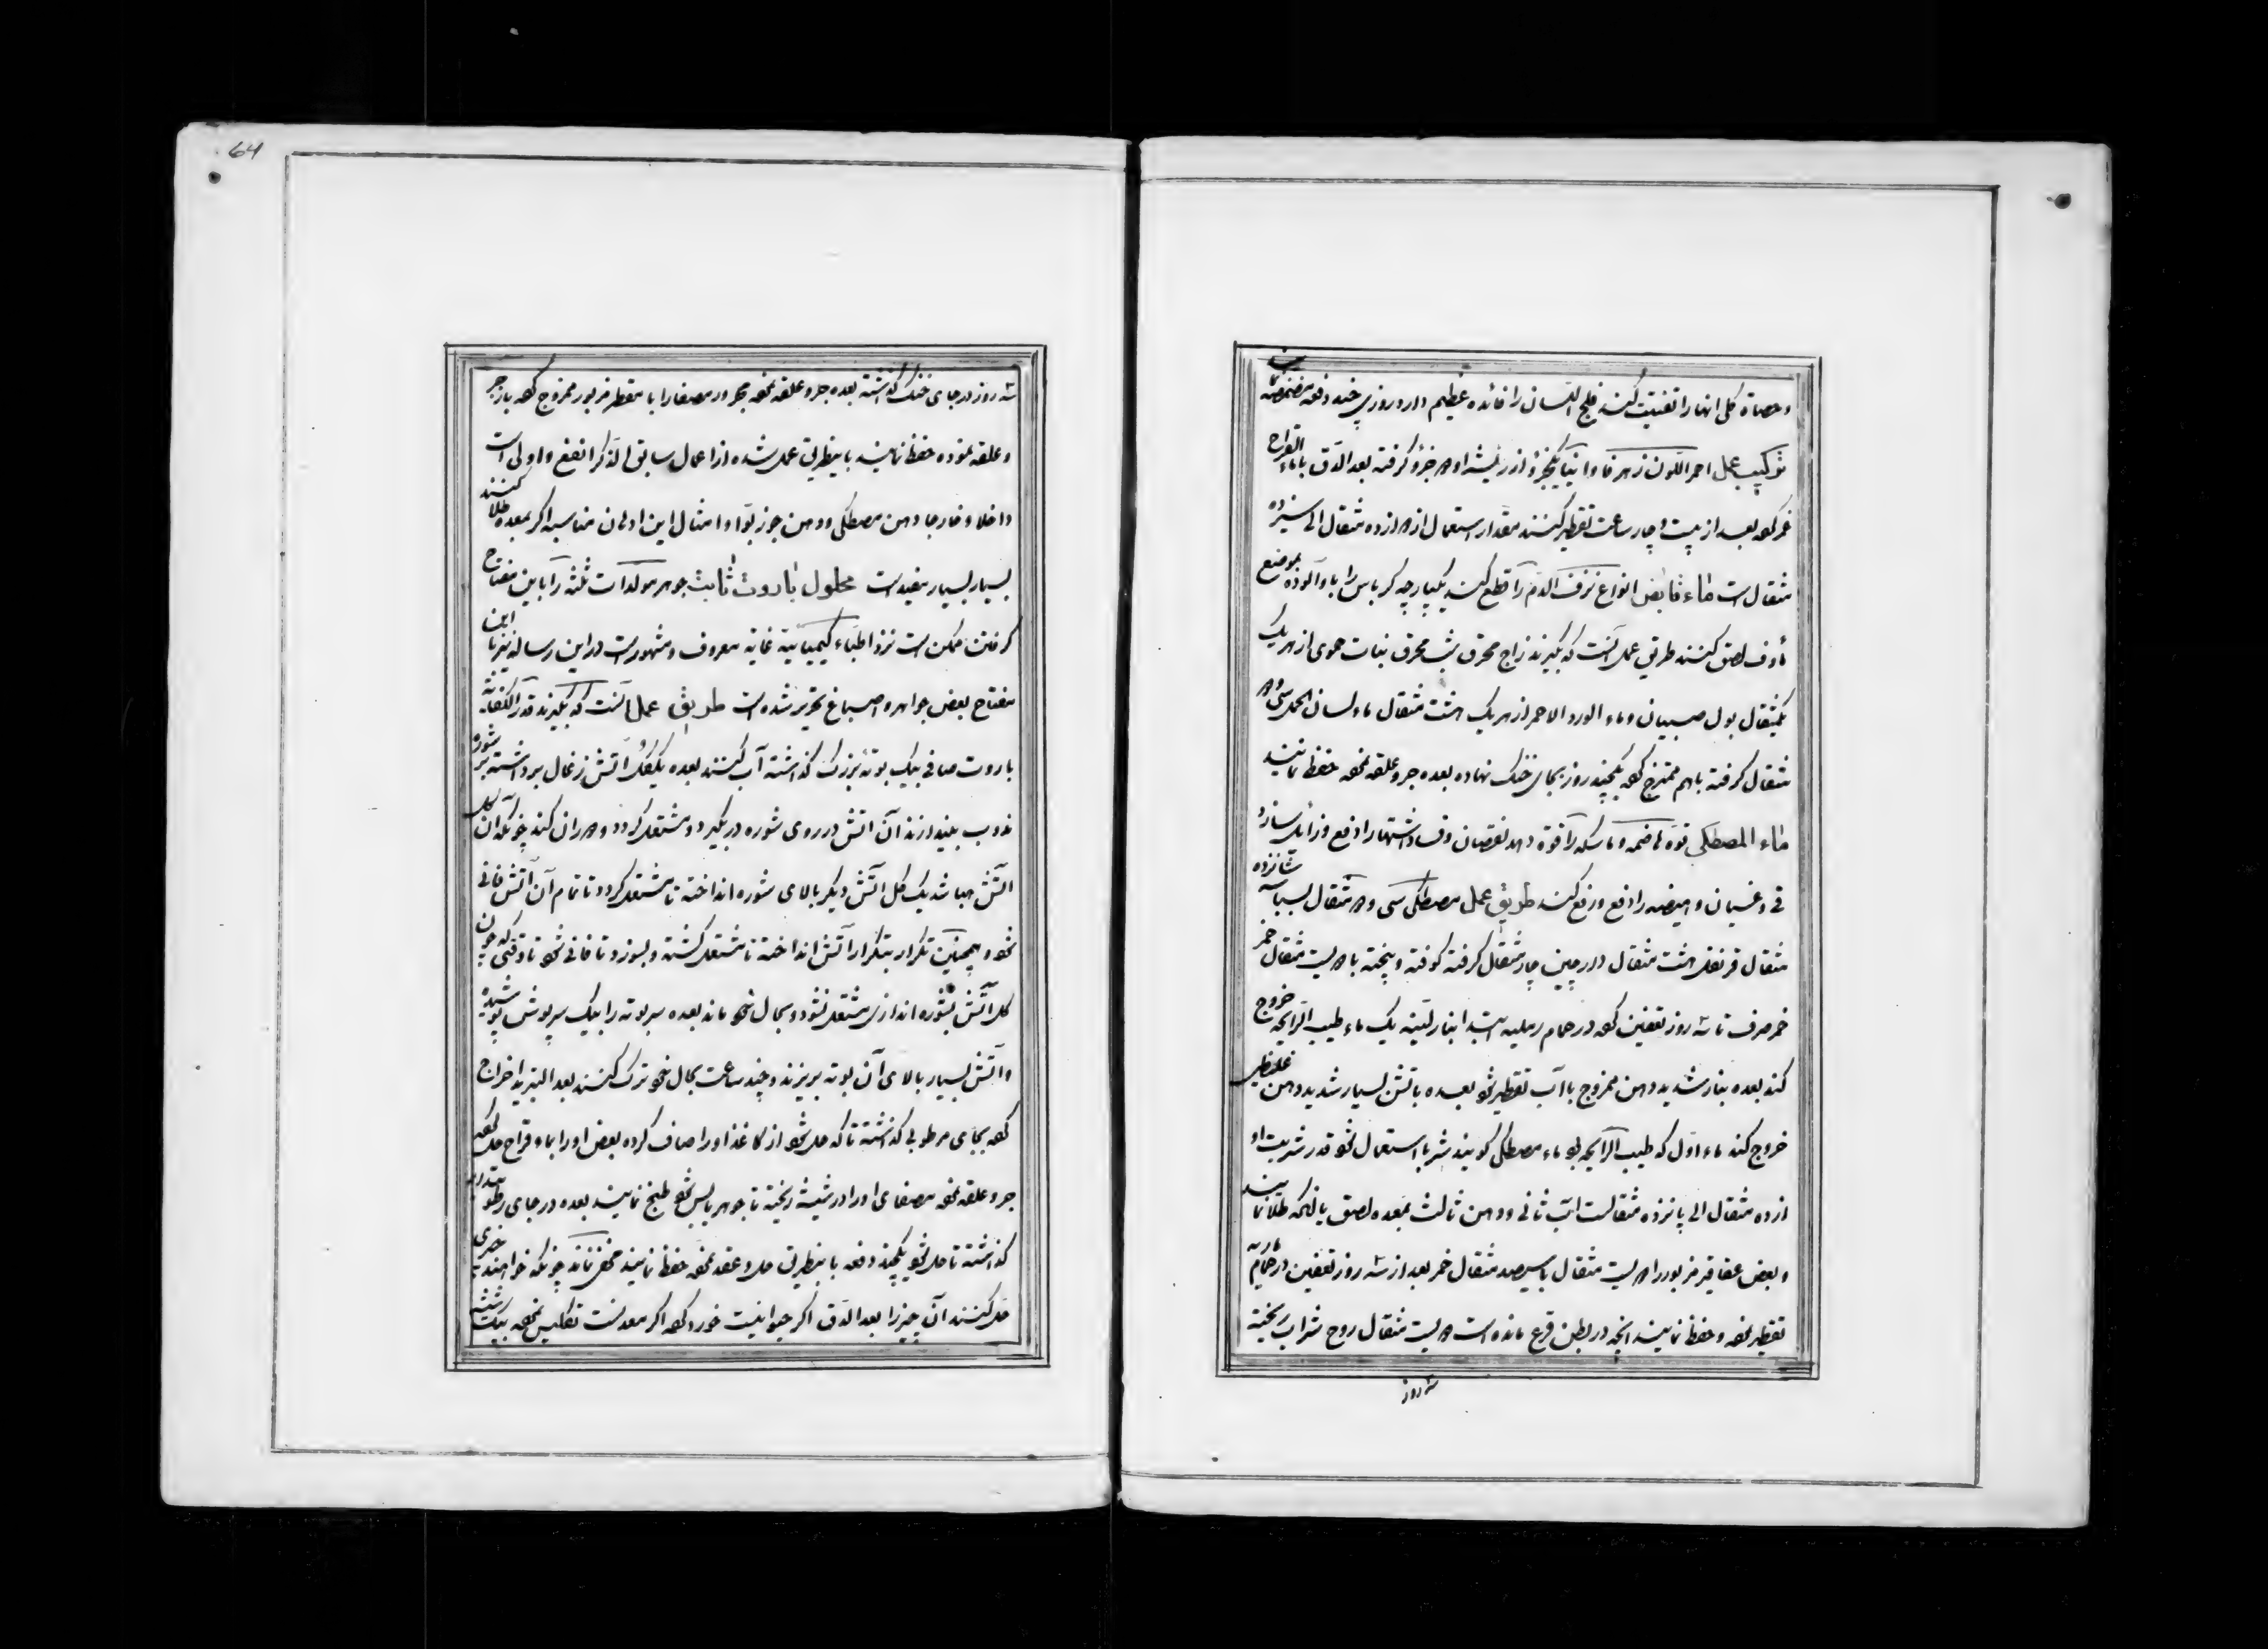 وحصاة کلی انها را تفتیت کند فلج اللسان را فائده عظیم دارد روزی چند دفعه مضمضه
ترکیب عمل احمر اللون زهر فاوانیا یکجزؤ از ریشه او جزؤ گرفته بعد الدق با ماء القراح
بعد از بیست و چار ساعت تقطیر کنند مقدار استعمال از ده مثقال الی سیزده
مثقال است ماء قابض انواع نزف الدم را قطع کند یکپارچه کرباس را باو آلوده بموضع
مأوف لصق کنند طریق عمل آنست که بگیرند زاج محرق شب محرق نبات حموی از هر یک
یکمثقال بول صبیان وماء الورد الاحمر از هر یک هشت مثقال ماء لسان الحمل سی و
مثقال گرفته باهم ممتزج یکچند روز بجای خنک نهاده بعده جر و علقه حفظ نمایند
ماء المصطکی قوه هاضمه و ماسکه را قوة دهد نقصان و فساد اشتها را دفع و زائل سازد
قی و غثیان و هیضه را دفع و رفع کند طریق عمل مصطکی سی و مثقال بسباسه شانزده
مثقال قرنفل هشت مثقال دارچین چار مثقال گرفته کوفته و بیخته با بیست مثقال خمر
خمر صرف تا سه روز تعفین در حمام رملیه ابتدا بنار لینه یک ماء طیب الرایحه خروج
کند بعده بنار شدید دهن ممزوج با آب تقطیر بعده باتش بسیار شدید دهن غلیظی
خروج کند ماء اول که طیب الرایحه ماء مصطکی گویند شربا استعمال قدر شربت او
از ده مثقال الی پانزده مثقالست آب ثانی و دهن ثالث بمعده لصق یا لیخه طلا نمایند
و بعض عقاقیر مزبور را بیست مثقال با سیصد مثقال خمر بعد از سه روز تعفین در حمام ماریه
تقطیر و حفظ نمایند انچه در بطن قرع مانده است بیست مثقال روح شراب ریخته
سه روز
64
سه روز در جای خنک گذاشته بعده جر و علقه مجرور مصفا را با مقطر مزبور ممزوج باز جر
و علقه نموده حفظ نمایند باینطریق عمل شده از اعمال سابق الذکر انفع و اولی است
داخلا و خارجا دهن مصطکی و دهن جوز بوا و امثال این ادهان مناسبه اگر بمعده طلا کنند
بسیار بسیار مفیدست محلول باروت ثابت جوهر مولدات ثلثه را باین مفتاح
گرفتن ممکن است نزد اطباء کیمیائیه غایة معروف و مشهورست در این رساله نیز با این
مفتاح بعض جواهر و اصباغ تحریر شده است طریق عمل آنست که بگیرند قدر الکفایه
باروت صافی بیک بوته بزرک گذاشته آب کنند بعده یک گل آتش زغال برداشته بر شوره
مذوب بیندازند آن آتش در روی شوره در بگیرد و مشتعل گردد و دوران کند چونکه آن گل
آتش هبا شد یک گل آتش دیگر بالای شوره انداخته تا مشتعل گردد تا تمام آن آتش فانی
و همچنین تکرار بتکرار آتش انداخته تا مشتعل گشته و بسوزد تا فانی تا وقتی که چون
گل آتش بشوره اندازی مشتعل نشود و بحال ماند بعده سر بوته را بیک سرپوش پوشیده
و آتش بسیار بالای آن بوته بریزند و چند ساعت بحال ترک کنند بعد التبرید اخراج
بجای مرطوبی گذاشته تا که حل از کاغذ او را صاف کرده بعض او را بماء قراح حل
جر و علقه مصفای او را در شیشه ریخته تا جوهر یابس طبخ نمایند بعده در جای رطوبتدار
گذاشته تا حل یکچند دفعه باینطریق حل و عقد حفظ نمایند مخفی نماند چونکه خواهند چیزی
حل کنند آن چیز را بعد الدق اگر حیوانیست خورد اگر معدنست تکلیس بیک شیشه